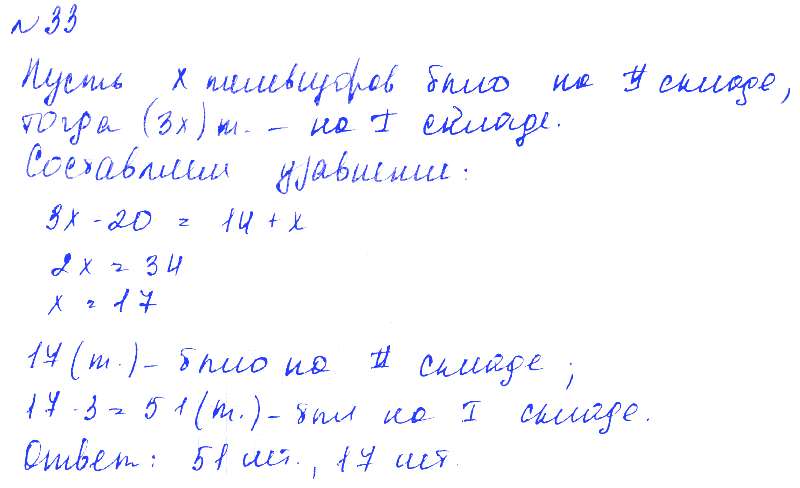 № 33
Пусть x телевизоров было на II складе,
тогда (3x) т. – на I складе.
Составляем уравнение:
3x - 20 = 14 + x
2x = 34
x = 17
17 (т.) – было на II складе;
17 · 3 = 51 (т.) – был на I складе.
Ответ: 51 шт., 17 шт.